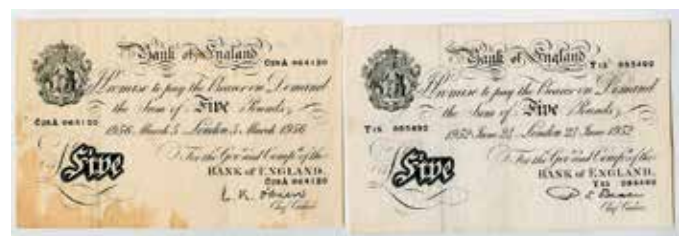 Bank of England
C29A 064120
I Promise to pay the Bearer on Demand
the Sum of Five Pounds
C29A 064120
1956 March 5 London 5 March 1956
For the Govr and Compa of the
BANK of ENGLAND.
C29A 064120
Five
L. K. O'Brien
Chief Cashier
Bank of England
I Promise to pay the Bearer on Demand
the Sum of Five Pounds
1952 June London June 1952
For the Govr and Compa of the
BANK of ENGLAND.
Five
Chief Cashier